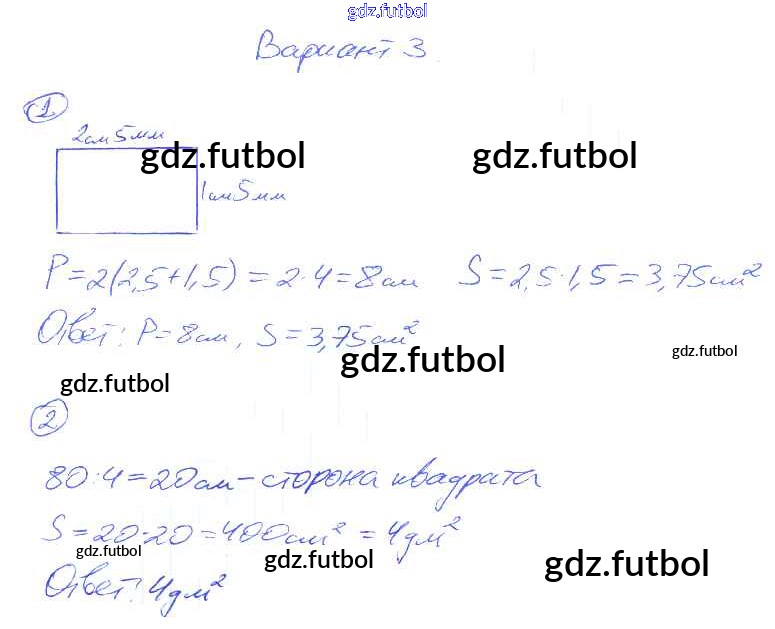 gdz.futbol
Вариант 3
1
2см 5мм
gdz.futbol gdz.futbol
1см 5мм
P=2(2,5+1,5)=2·4=8см S=2,5·1,5=3,75см²
Ответ: P=8см, S=3,75см²
gdz.futbol gdz.futbol
gdz.futbol
2
80:4=20см-сторона квадрата
S=20·20=400см²=4дм²
gdz.futbol gdz.futbol gdz.futbol
Ответ: 4дм²